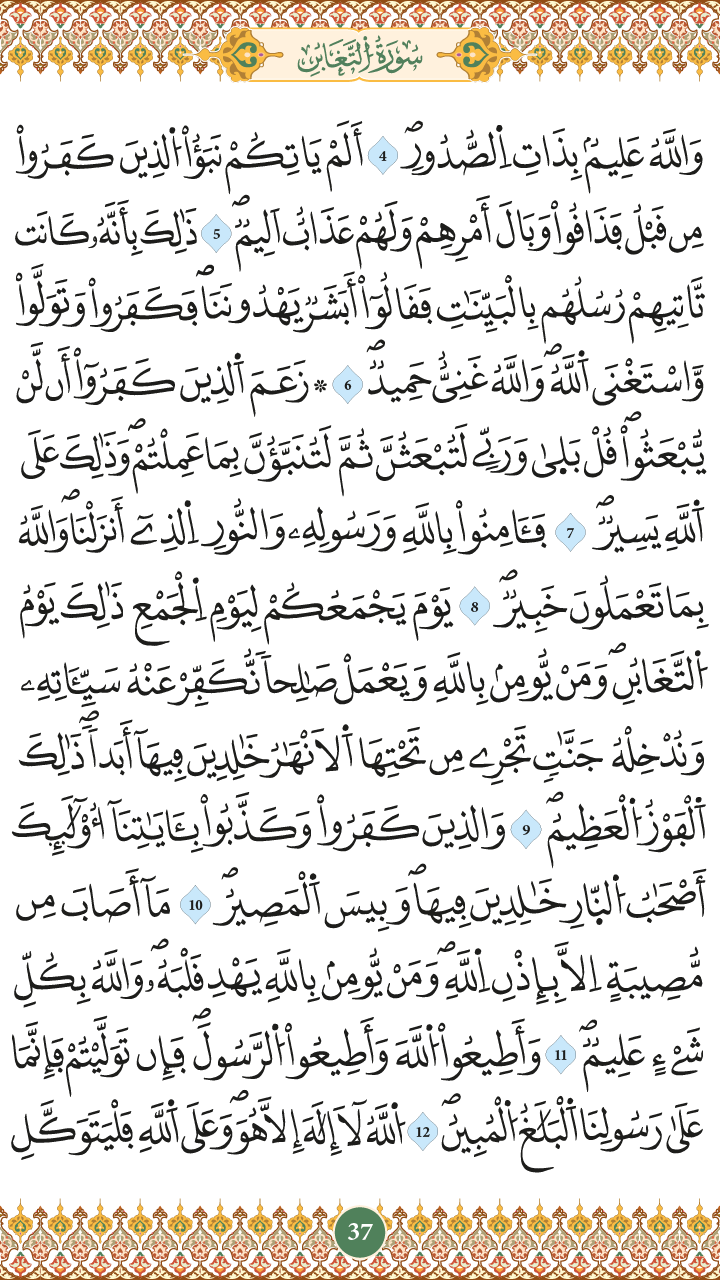 سُورَةُ التَّغَابُنِ
وَاللَّهُ عَلِيمُۢ بِذَاتِ اِ۬لصُّدُورِۖ 4 أَلَمْ يَاتِكُمْ نَبَؤُاْ اُ۬لذِينَ كَفَرُواْ
مِن قَبْلُ فَذَاقُواْ وَبَالَ أَمْرِهِمْ وَلَهُمْ عَذَابٌ اَلِيمٌۖ 5 ذَٰلِكَ بِأَنَّهُۥ كَانَت
تَّاتِيهِمْ رُسُلُهُم بِالْبَيِّنَٰتِ فَقَالُوٓاْ أَبَشَرٌ يَهْدُونَنَاۖ فَكَفَرُواْ وَتَوَلَّواْ
وَّاسْتَغْنَى اَ۬للَّهُۖ وَاللَّهُ غَنِيٌّ حَمِيدٌۖ 6 ۞ زَعَمَ اَ۬لذِينَ كَفَرُوٓاْ أَن لَّنْ
يُّبْعَثُواْۖ قُلْ بَلَىٰ وَرَبِّے لَتُبْعَثُنَّ ثُمَّ لَتُنَبَّؤُنَّ بِمَا عَمِلْتُمْۖ وَذَٰلِكَ عَلَى
اَ۬للَّهِ يَسِيرٌۖ 7 فَـَٔامِنُواْ بِاللَّهِ وَرَسُولِهِۦ وَالنُّورِ اِ۬لذِےٓ أَنزَلْنَاۖ وَاللَّهُ
بِمَا تَعْمَلُونَ خَبِيرٌۖ 8 يَوْمَ يَجْمَعُكُمْ لِيَوْمِ اِ۬لْجَمْعِ ذَٰلِكَ يَوْمُ
اُ۬لتَّغَابُنِۖ وَمَنْ يُّومِنۢ بِاللَّهِ وَيَعْمَلْ صَٰلِحاً نُّكَفِّرْ عَنْهُ سَيِّـَٔاتِهِۦ
وَنُدْخِلْهُ جَنَّٰتٍ تَجْرِے مِن تَحْتِهَا اَ۬لَانْهَٰرُ خَٰلِدِينَ فِيهَآ أَبَداًۖ ذَٰلِكَ
اَ۬لْفَوْزُ اُ۬لْعَظِيمُۖ 9 وَالذِينَ كَفَرُواْ وَكَذَّبُواْ بِـَٔايَٰتِنَآ أُوْلَٰٓئِكَ
أَصْحَٰبُ اُ۬لنّ۪ارِ خَٰلِدِينَ فِيهَاۖ وَبِيسَ اَ۬لْمَصِيرُۖ 10 مَآ أَصَابَ مِن
مُّصِيبَةٍ اِلَّا بِإِذْنِ اِ۬للَّهِۖ وَمَنْ يُّومِنۢ بِاللَّهِ يَهْدِ قَلْبَهُۥۖ وَاللَّهُ بِكُلِّ
شَےْءٍ عَلِيمٌۖ 11 وَأَطِيعُواْ اُ۬للَّهَ وَأَطِيعُواْ اُ۬لرَّسُولَۖ فَإِن تَوَلَّيْتُمْ فَإِنَّمَا
عَلَىٰ رَسُولِنَا اَ۬لْبَلَٰغُ اُ۬لْمُبِينُۖ 12 اُ۬للَّهُ لَآ إِلَٰهَ إِلَّا هُوَۖ وَعَلَى اَ۬للَّهِ فَلْيَتَوَكَّلِ
37